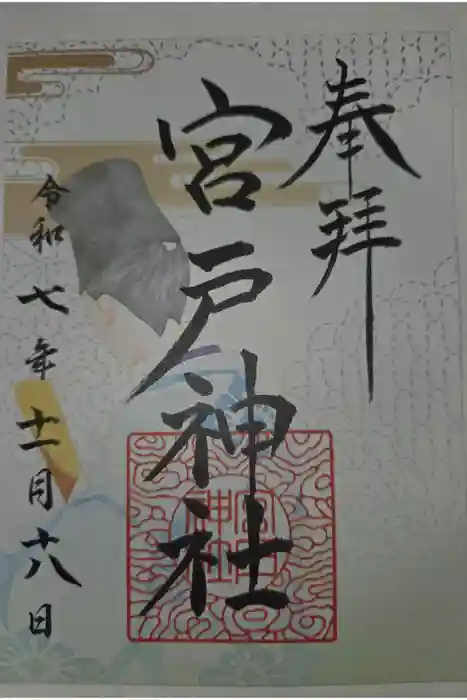 奉拝
宮戸神社
令和七年十一月十八日